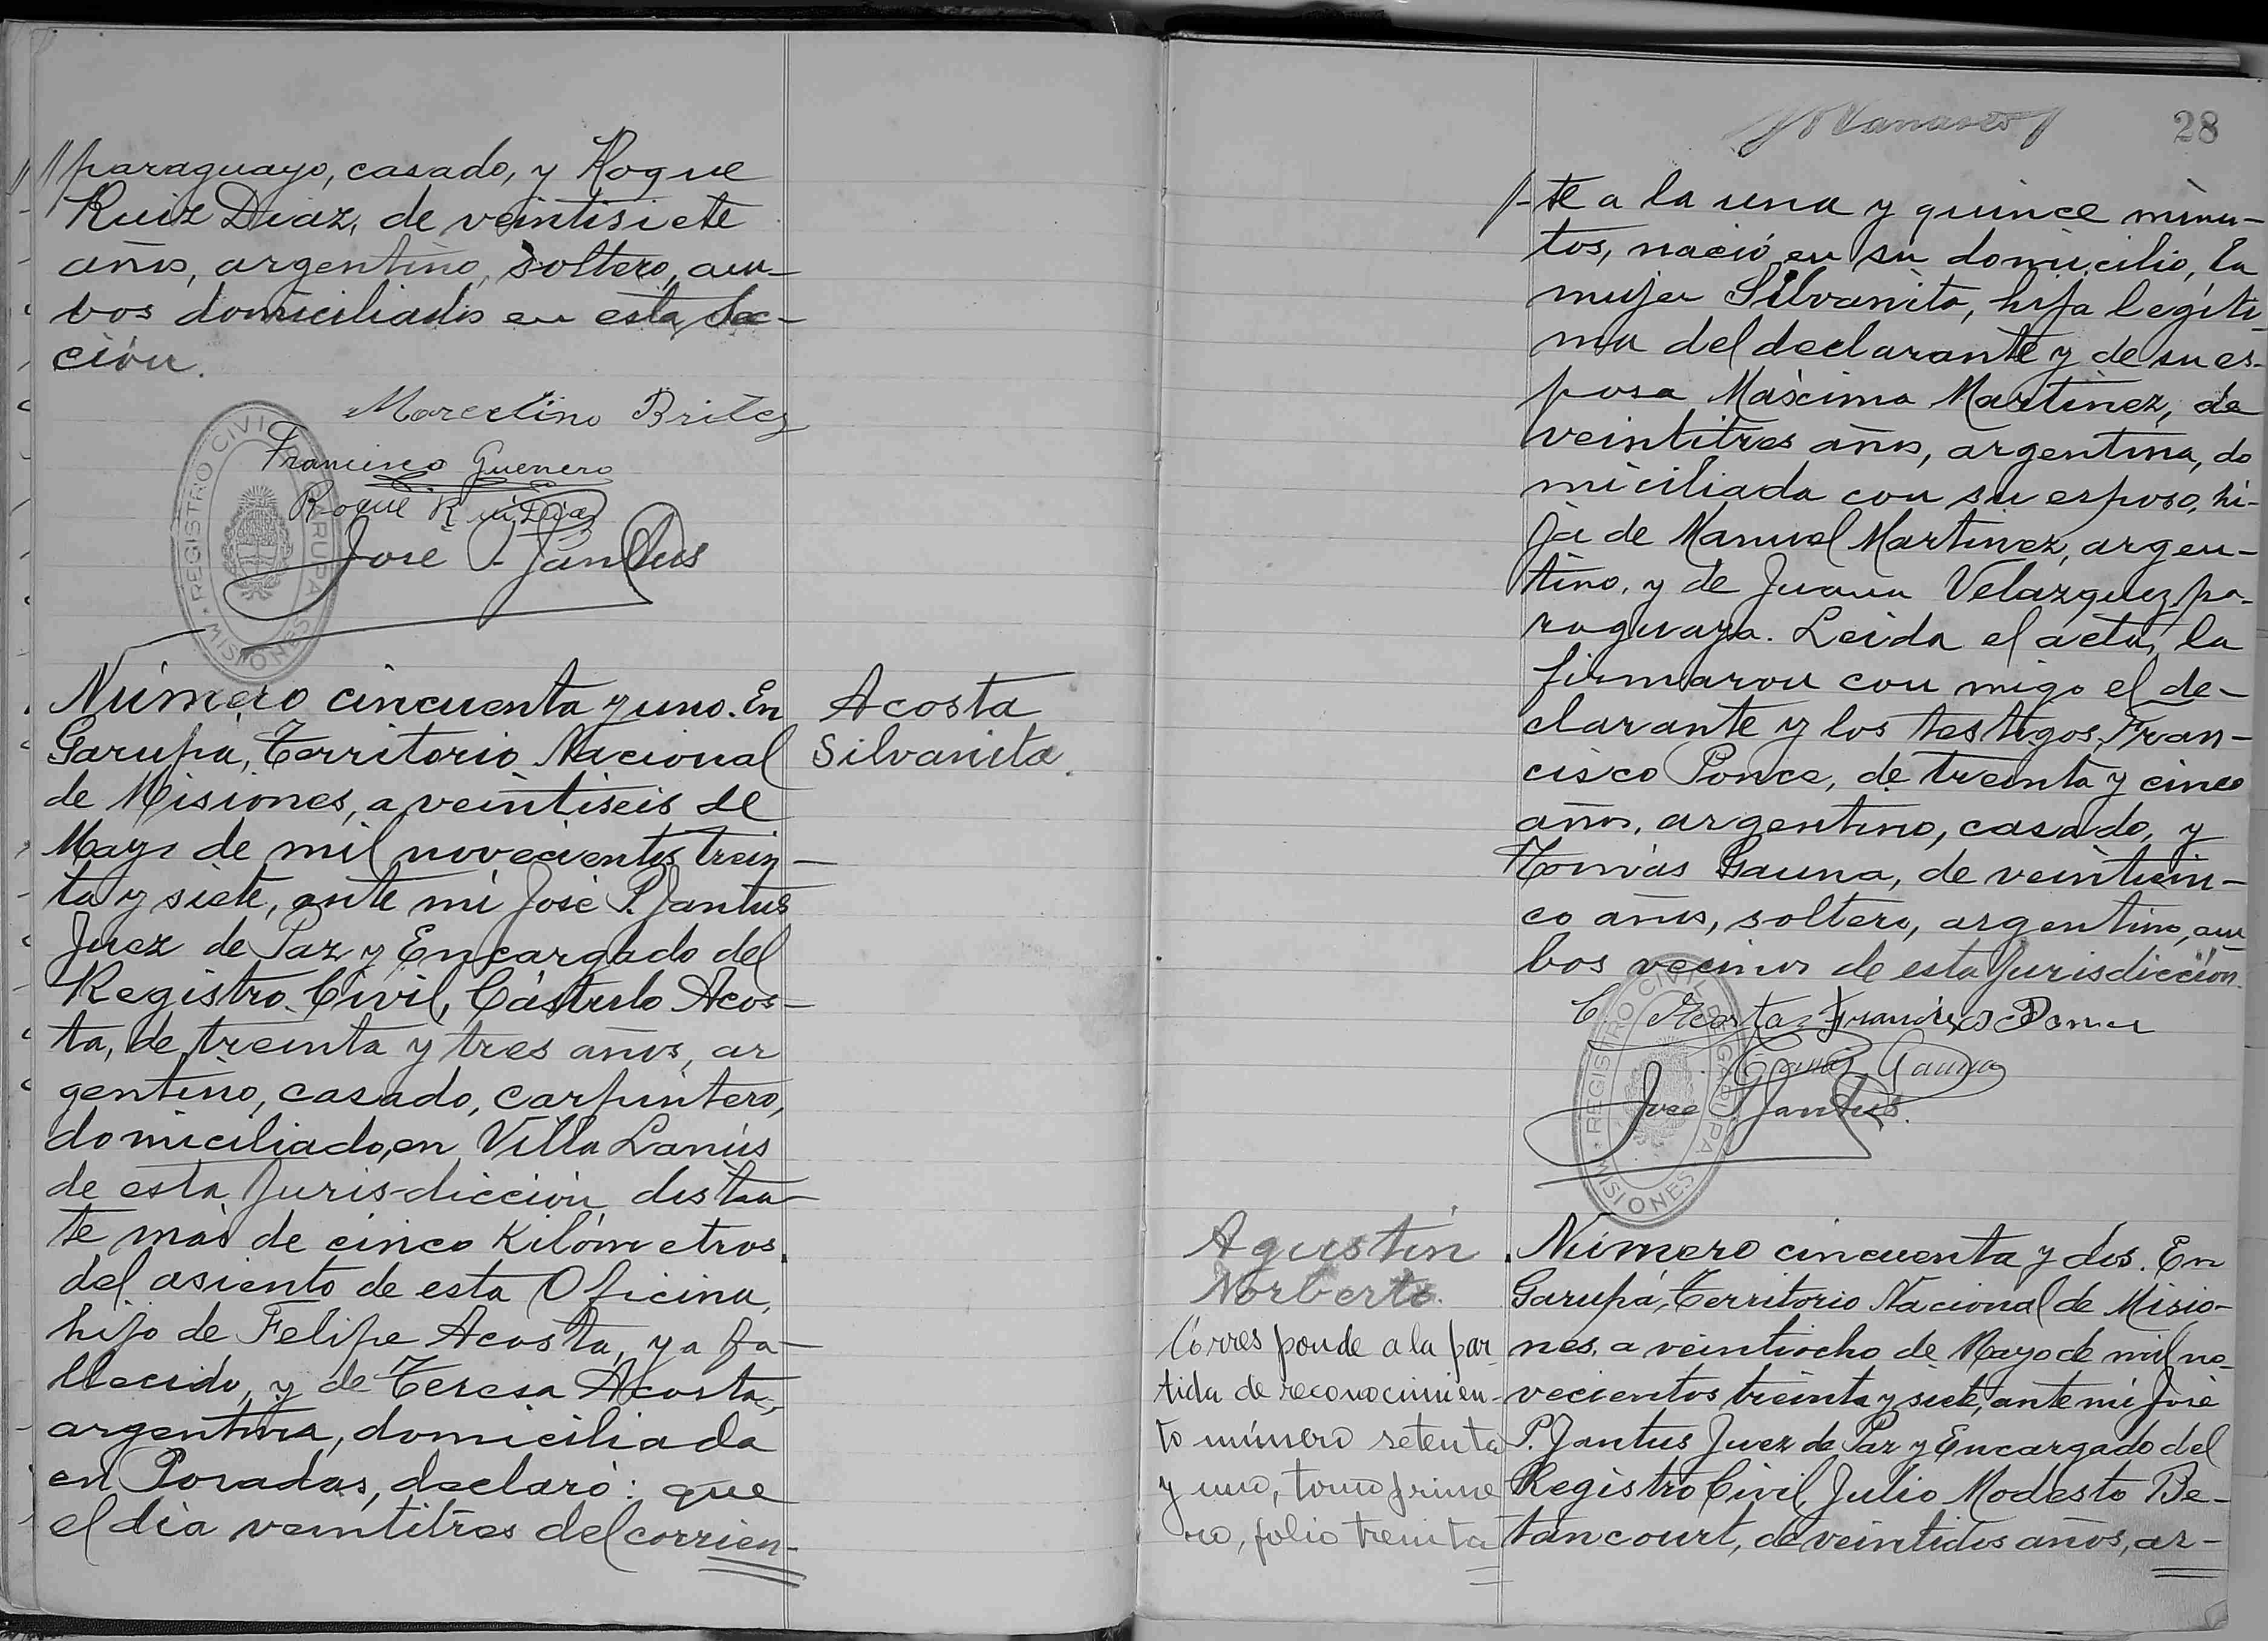 paraguayo, casado, y Roque
Ruiz Diaz, de veintisiete
años, argentino, soltero, am-
bos domiciliados en esta Sec-
ción.
Marcelino Britez
Francisco Guerrero
Roque Ruiz Diaz
José P. Jantus
REGISTRO CIVIL DE GARUPA
MISIONES
Número cincuenta y uno. En
Garupa, Territorio Nacional
de Misiones, a veintiseis de
Mayo de mil novecientos trein-
ta y siete, ante mi José P. Jantus
Juez de Paz y Encargado del
Registro Civil, Cástulo Acos-
ta, de treinta y tres años, ar
gentino, casado, carpintero,
domiciliado, en Villa Lanús
de esta Juris-dicción, distan-
te más de cinco Kilómetros
del asiento de esta Oficina,
hijo de Felipe Acosta, ya fa-
llecido, y de Teresa Acosta,
argentina, domiciliada
en Posadas, declaró: que
el día veintitres del corrien-
Acosta
Silvanita.
28
-te a la una y quince minu-
tos, nació en su domicilio, la
mujer Silvanita, hija legíti-
ma del declarante y de su es-
posa Máxima Martínez, de
veintitres años, argentina, do
miciliada con su esposo, hi-
ja de Manuel Martinez, argen-
tino, y de Juana Velazquez, pa-
raguaya. Leida el acta, la
firmaron con migo el de-
clarante y los testigos, Fran-
cisco Ponce, de treinta y cinco
años, argentino, casado, y
Tomás Gauna, de veinticin-
co años, soltero, argentino, am
bos vecinos de esta Jurisdicción.
C Acosta Francisco Ponce
Tomás Gauna
José P. Jantus.
REGISTRO CIVIL DE GARUPA
MISIONES
Agustín
Norberto.
Corresponde a la par-
tida de reconocimien-
to número setenta
y uno, tomo prime
ro, folio treinta
Número cincuenta y dos. En
Garupá, Territorio Nacional de Misio-
nes, a veintiocho de Mayo de mil no-
vecientos treinta y siete, ante mi José
P. Jantus Juez de Paz y Encargado del
Registro Civil, Julio Modesto Be-
tancourt, de veintidos años, ar-